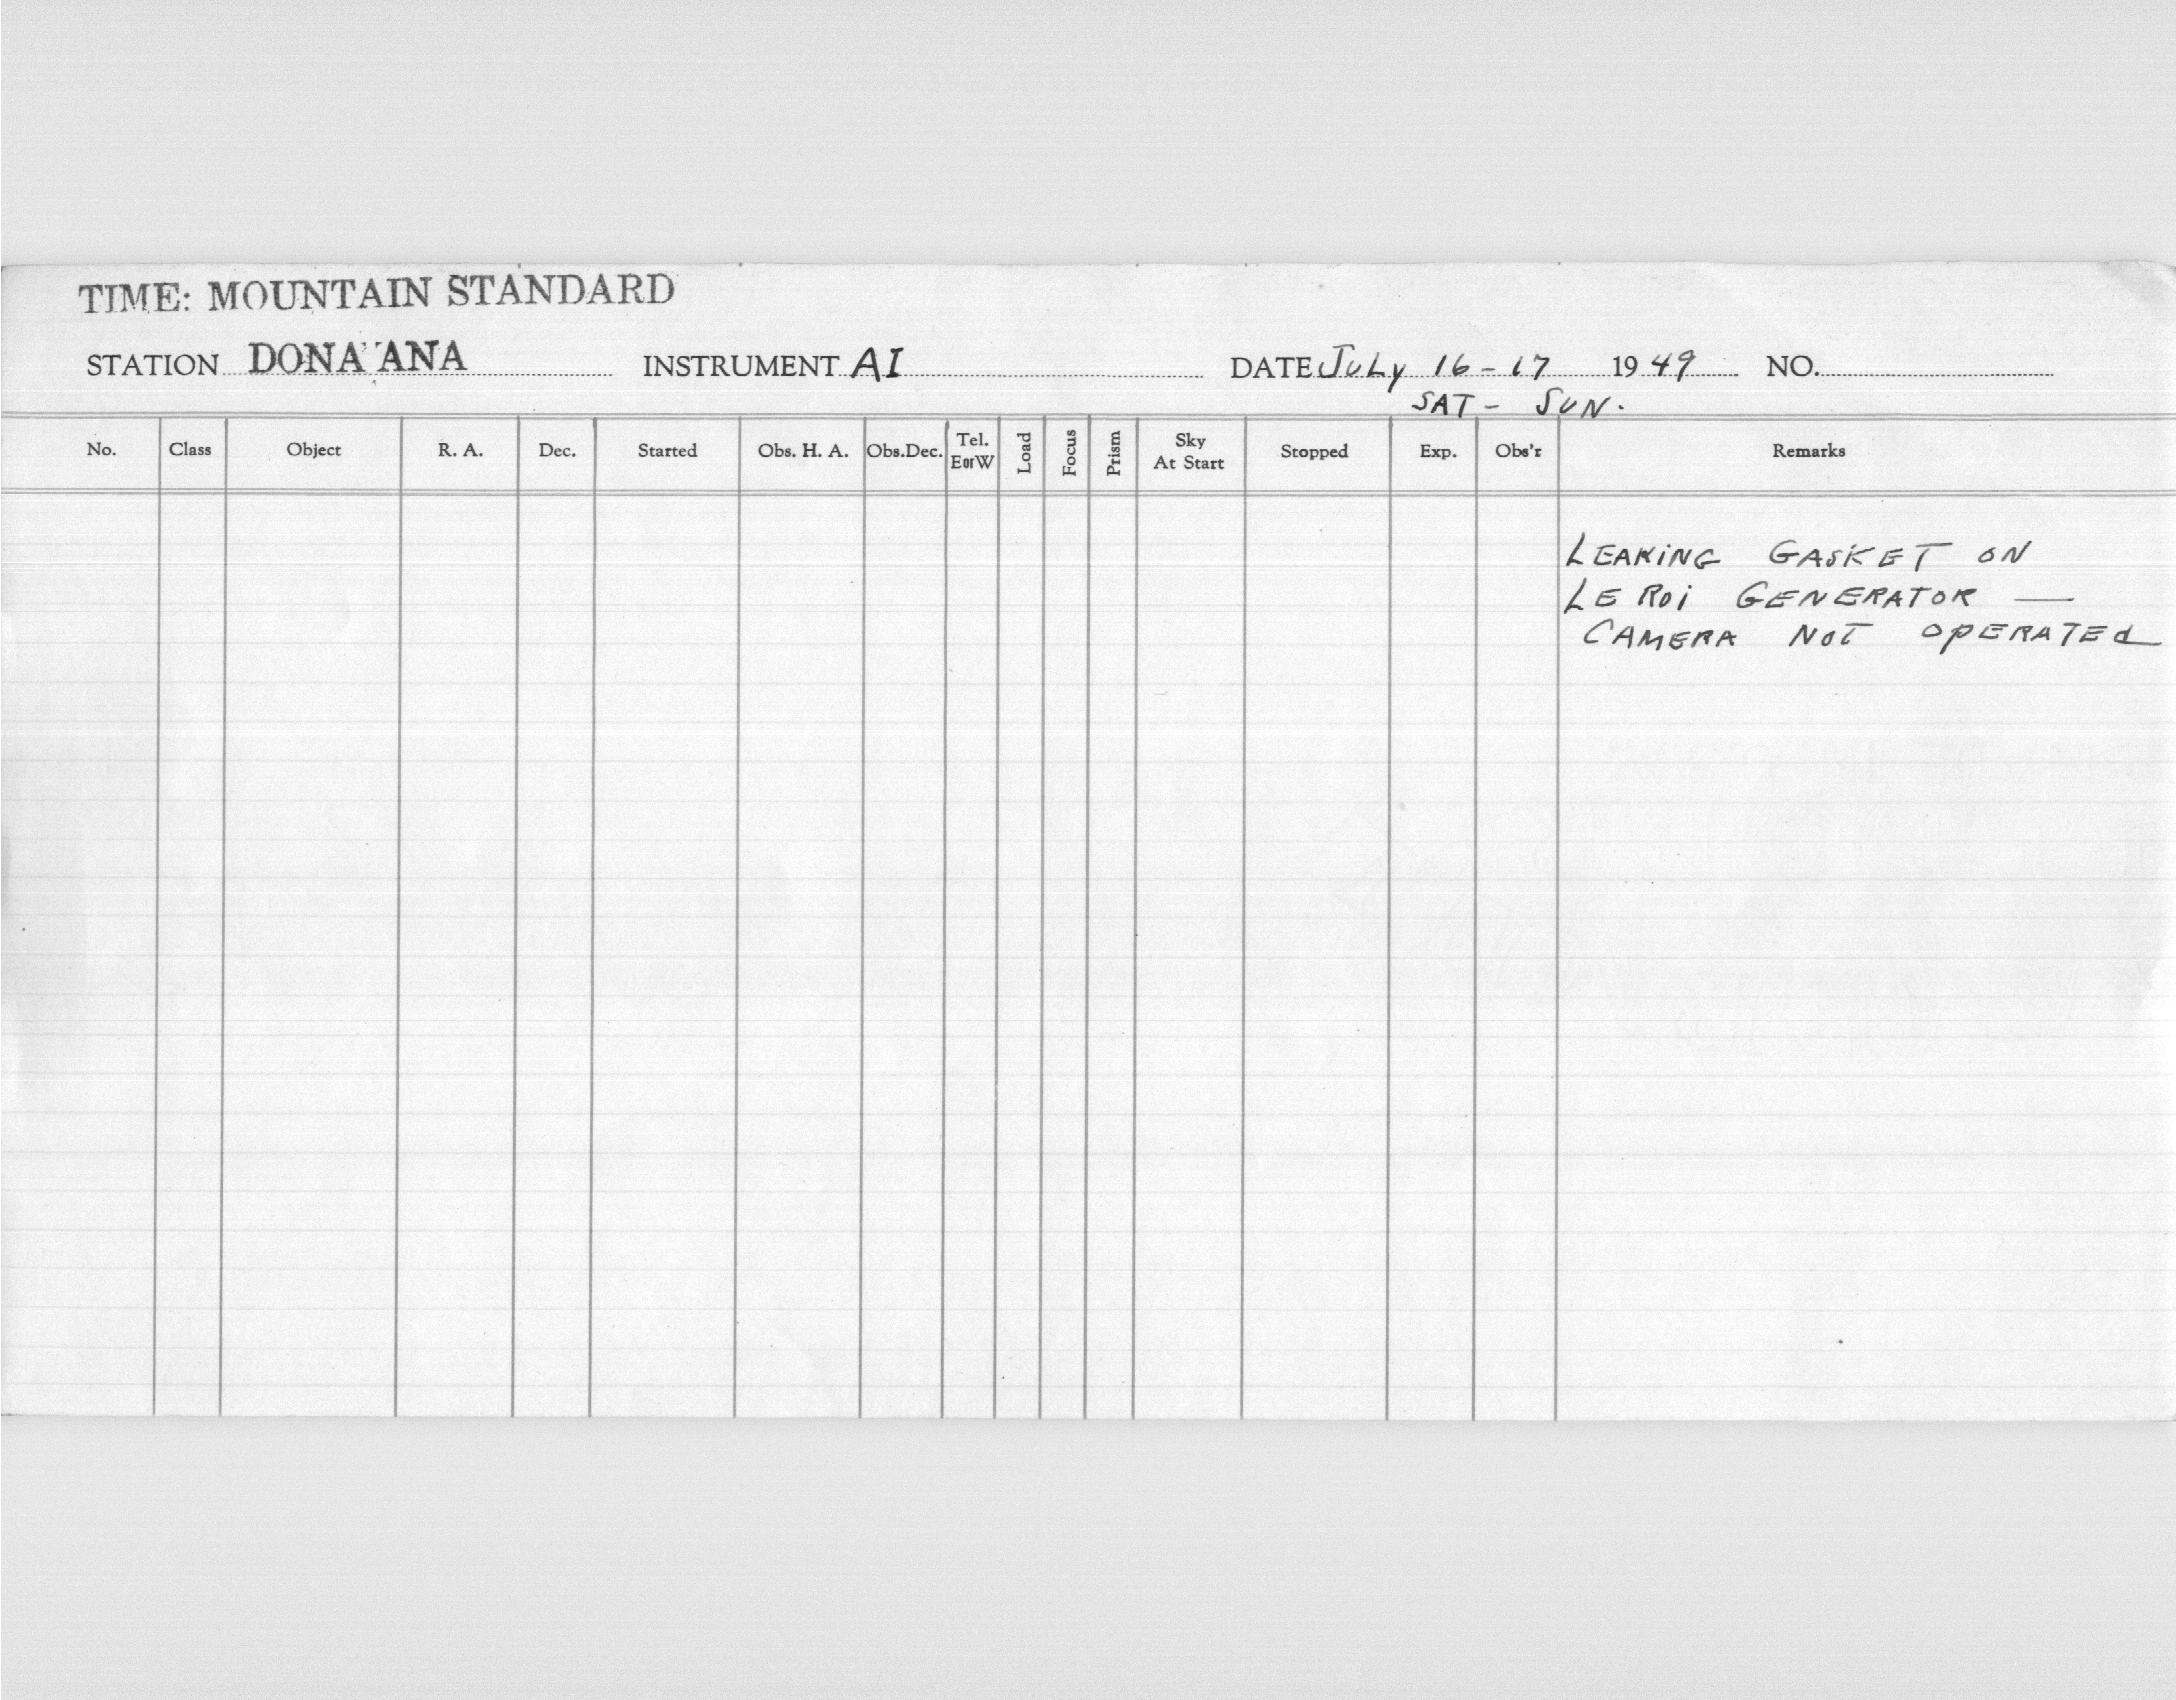 TIME: MOUNTAIN STANDARD
STATION DONA ANA INSTRUMENT AI DATE JULY 16-17 1949 NO.
SAT - SUN.
No. Class Object R. A. Dec. Started Obs. H. A. Obs.Dec. Tel. EorW Load Focus Prism Sky At Start Stopped Exp. Obs'r Remarks
LEAKING GASKET ON
LE ROI GENERATOR —
CAMERA NOT OPERATED